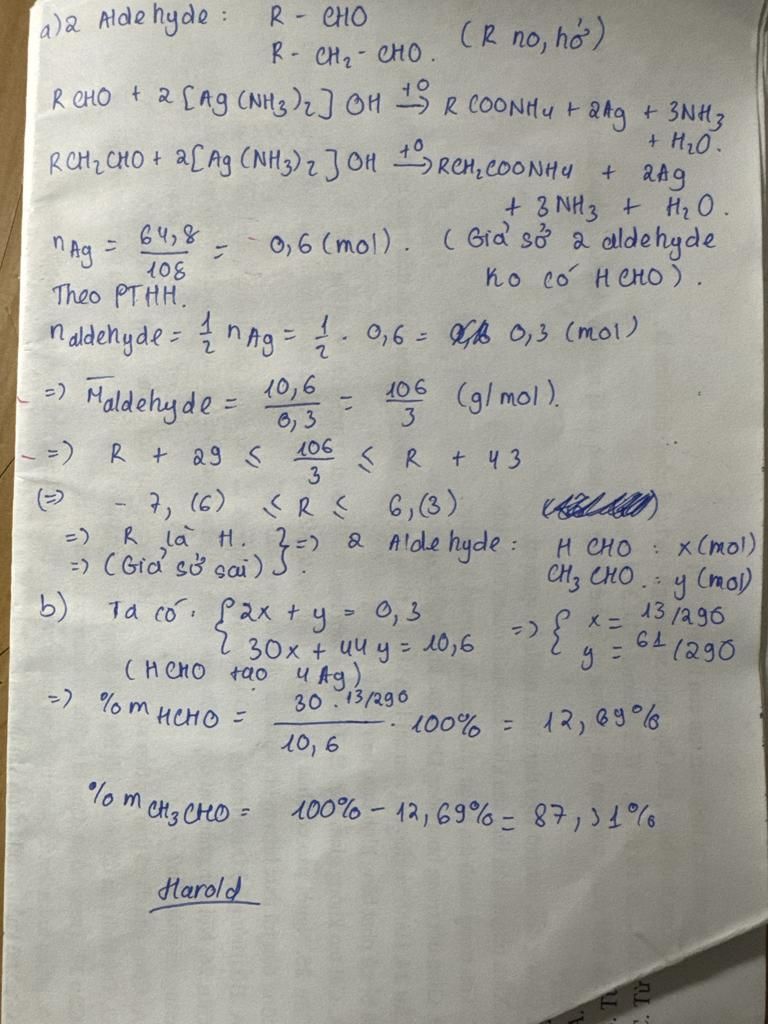 a) 2 Aldehyde : R - CHO
R - CH2 - CHO. (R no, hở)
RCHO + 2[Ag(NH3)2]OH →t0 RCOONH4 + 2Ag + 3NH3
+ H2O.
RCH2CHO + 2[Ag(NH3)2]OH →t0 RCH2COONH4 + 2Ag
+ 3NH3 + H2O.
nAg = 64,8/108 = 0,6 (mol). (Giả sử 2 aldehyde
ko có HCHO).
Theo PTHH.
naldehyde = 1/2 nAg = 1/2 . 0,6 = 0,3 (mol)
=> M̅aldehyde = 10,6/0,3 = 106/3 (g/mol).
=> R + 29 ≤ 106/3 ≤ R + 43
(=> - 7,(6) ≤ R ≤ 6,(3)
=> R là H. } => 2 Aldehyde : HCHO : x (mol)
=> (Giả sử sai) } . CH3CHO : y (mol)
b) Ta có : { 2x + y = 0,3 => { x = 13/290
{ 30x + 44y = 10,6 y = 61/290
(HCHO tạo 4Ag)
=> %mHCHO = 30 . 13/290 / 10,6 . 100% = 12,69%
%mCH3CHO = 100% - 12,69% = 87,31%
Harold